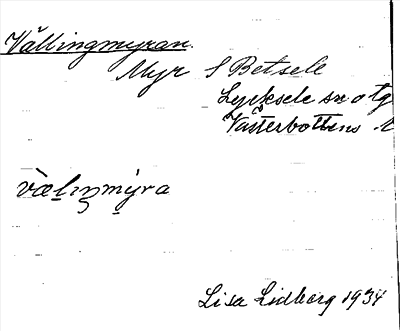 Vällingmyran.
Myr S Betsele
Lycksele sn o tg
Västerbottens l
væliŋmýra
Lisa Lidberg 1934